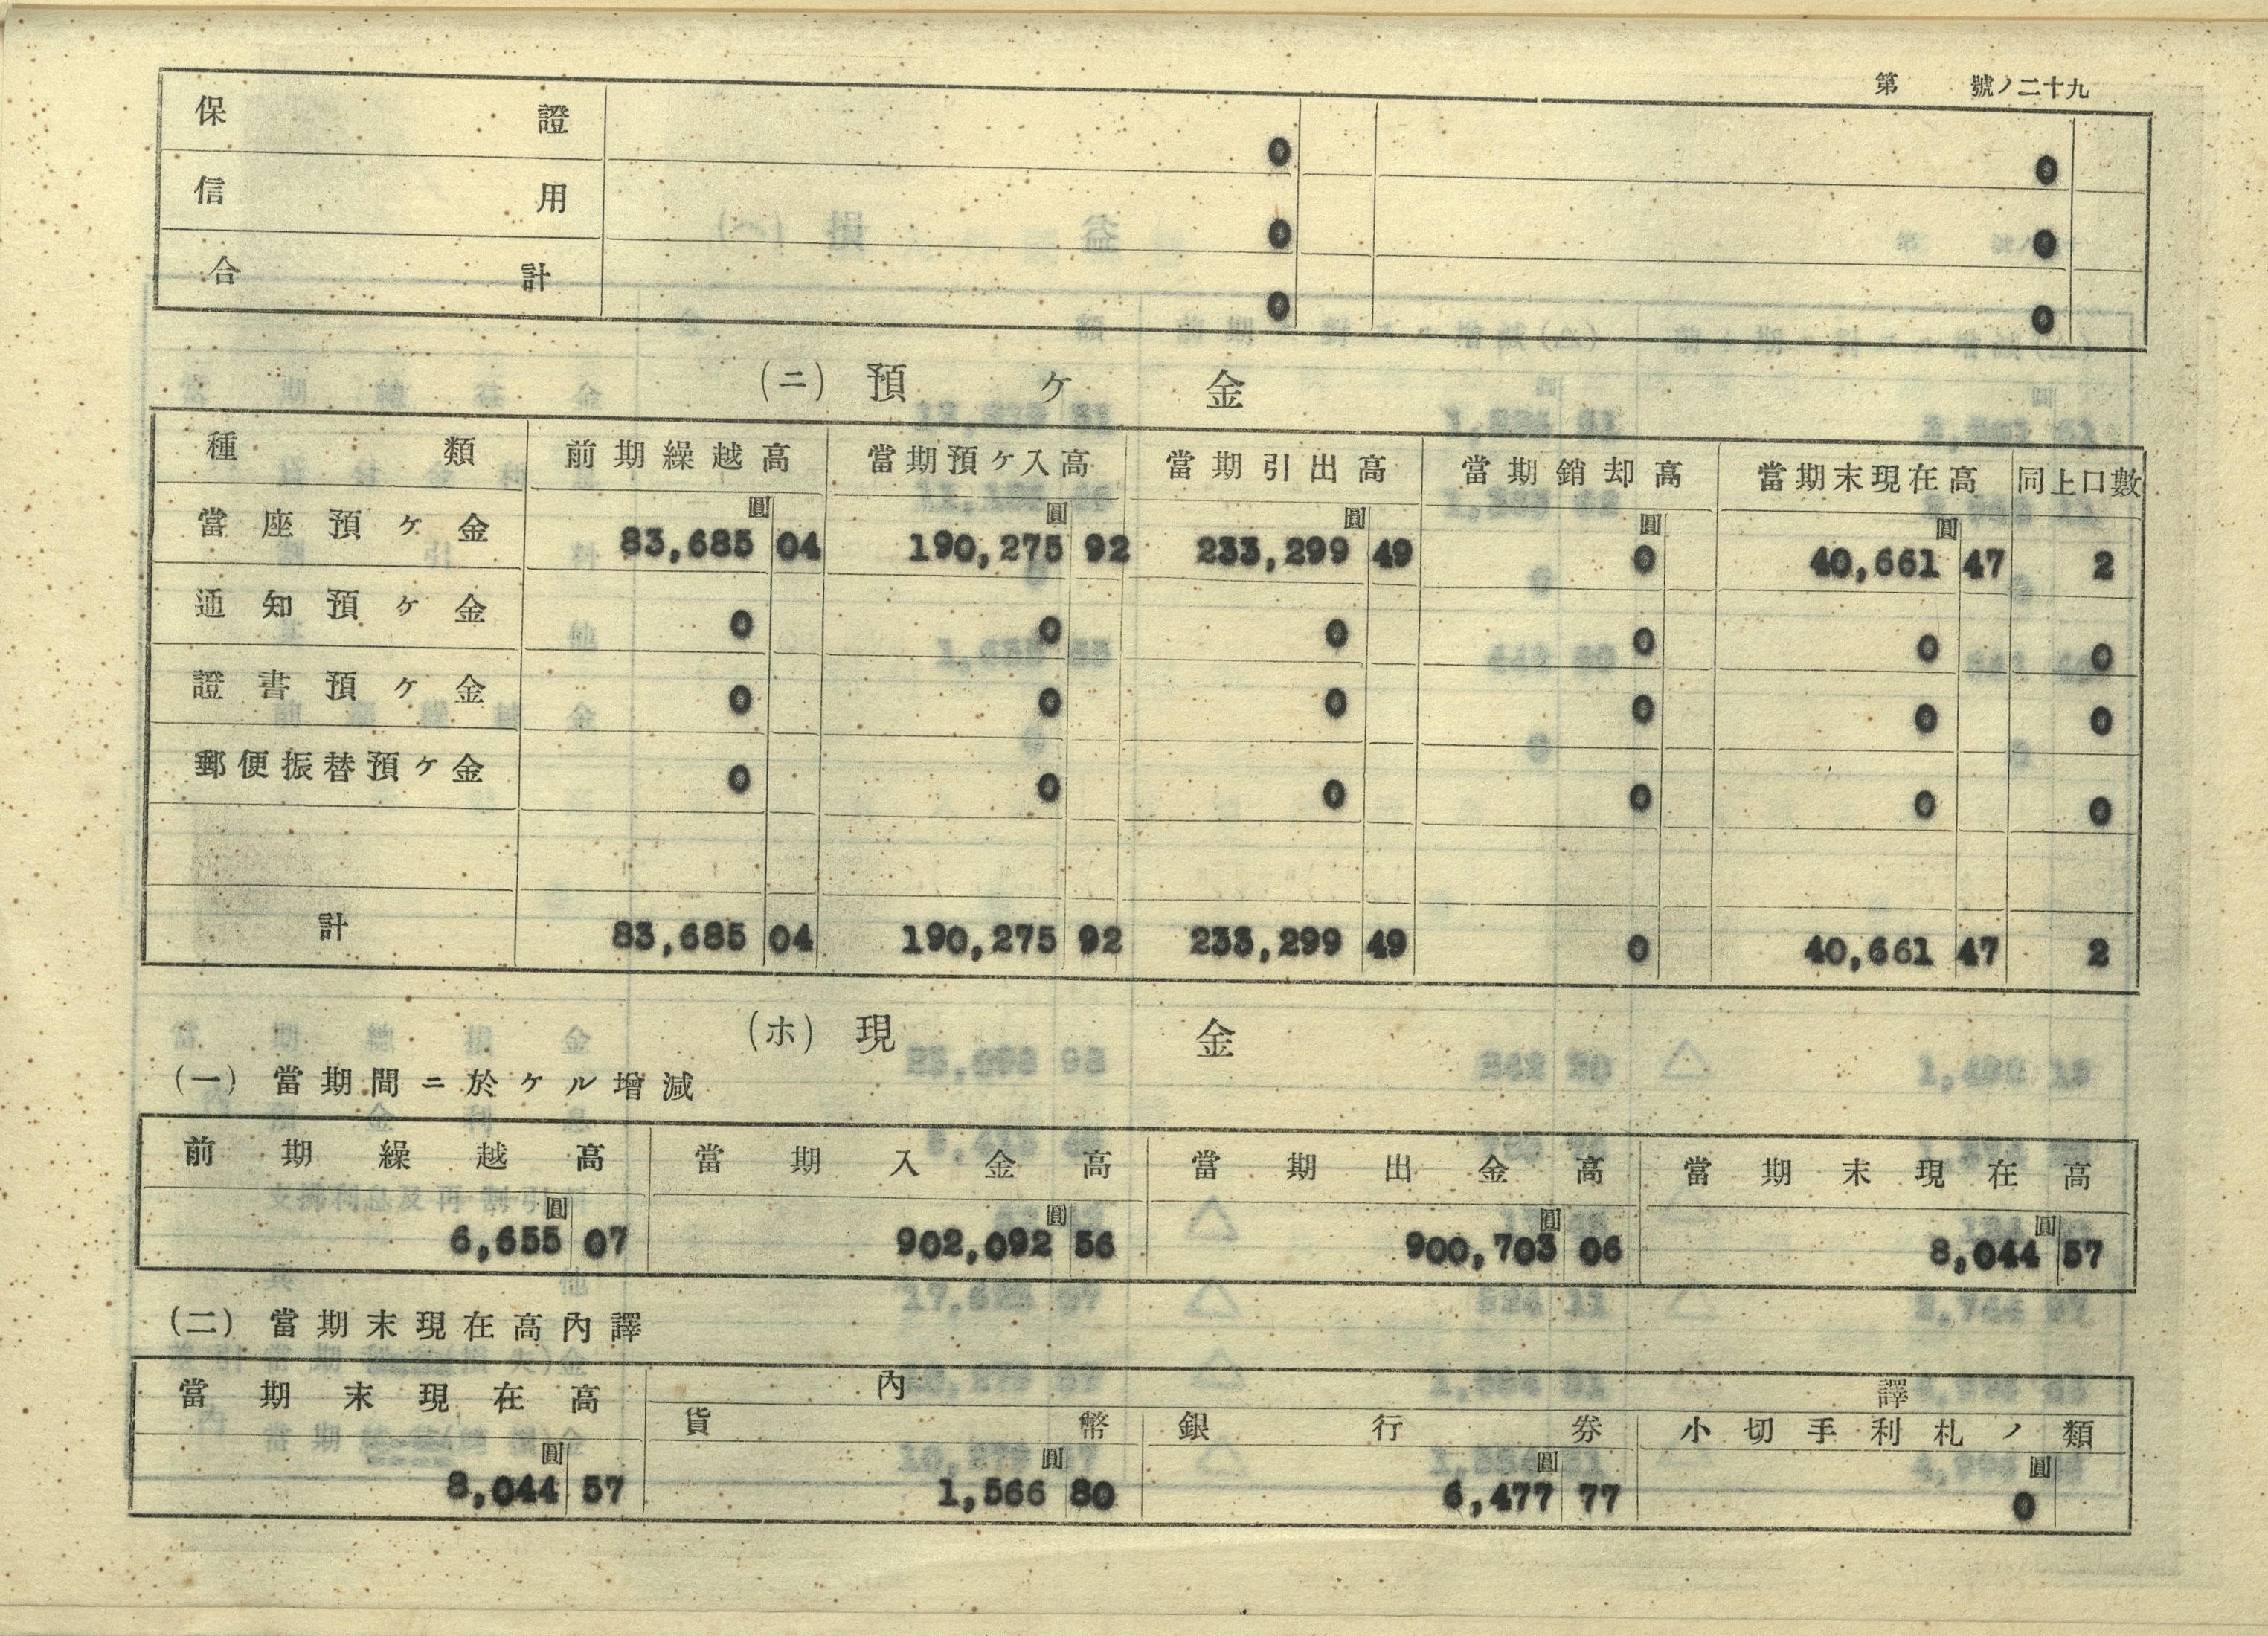 第 號ノ二十九
保證 0 0
信用 0 0
合計 0 0
(ニ) 預ケ金
種類 前期繰越高 當期預ケ入高 當期引出高 當期銷却高 當期末現在高 同上口數
圓 圓 圓 圓 圓
當座預ケ金 83,685 04 190,275 92 233,299 49 0 40,661 47 2
通知預ケ金 0 0 0 0 0 0
證書預ケ金 0 0 0 0 0 0
郵便振替預ケ金 0 0 0 0 0 0
計 83,685 04 190,275 92 233,299 49 0 40,661 47 2
(ホ) 現金
(一) 當期間ニ於ケル增減
前期繰越高 當期入金高 當期出金高 當期末現在高
圓 圓 圓 圓
6,655 07 902,092 56 900,703 06 8,044 57
(二) 當期末現在高內譯
當期末現在高 內譯
貨幣 銀行券 小切手利札ノ類
圓 圓 圓 圓
8,044 57 1,566 80 6,477 77 0